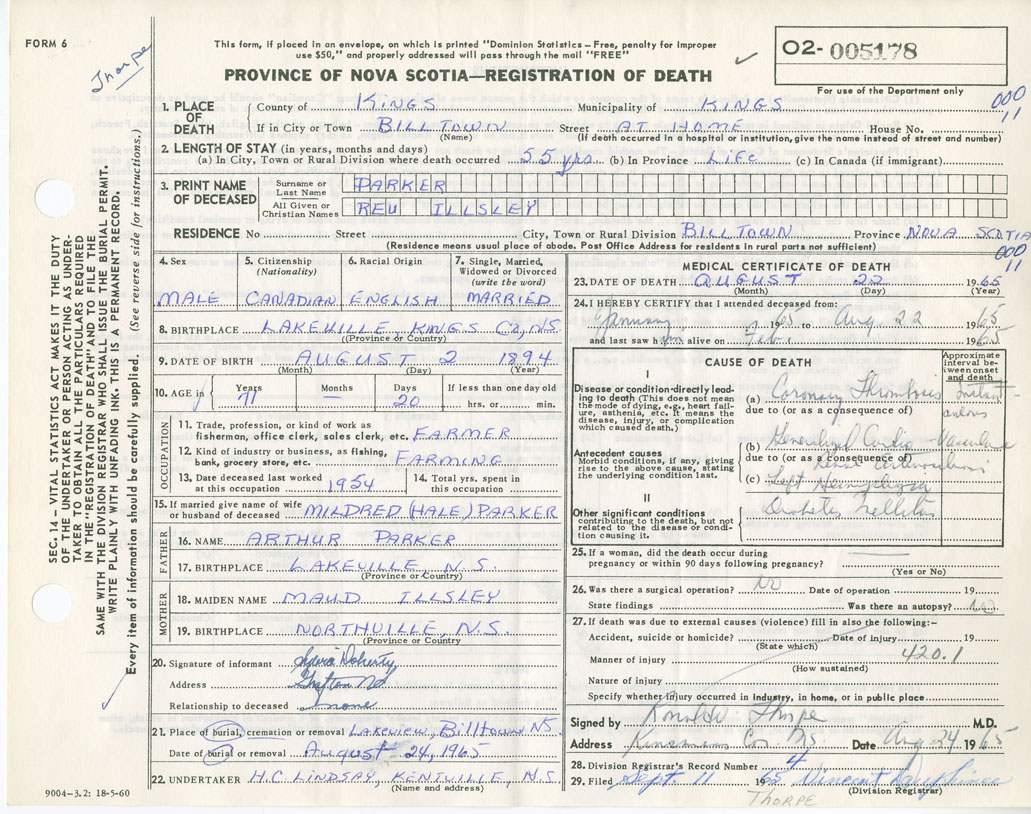 FORM 6
Thorpe
This form, if placed in an envelope, on which is printed "Dominion Statistics – Free, penalty for improper
use $50," and properly addressed will pass through the mail "FREE"
PROVINCE OF NOVA SCOTIA—REGISTRATION OF DEATH
O2- 005178
For use of the Department only
000
11
1. PLACE OF DEATH
County of KINGS Municipality of KINGS
If in City or Town BILLTOWN Street AT HOME House No.
(Name) (If death occurred in a hospital or institution, give the name instead of street and number)
2. LENGTH OF STAY (in years, months and days)
(a) In City, Town or Rural Division where death occurred 55 yrs (b) In Province LIFE (c) In Canada (if immigrant)
3. PRINT NAME OF DECEASED
Surname or Last Name PARKER
All Given or Christian Names REU ILLSLEY
RESIDENCE No Street City, Town or Rural Division BILLTOWN Province NOVA SCOTIA
(Residence means usual place of abode. Post Office Address for residents in rural parts not sufficient)
000
11
4. Sex
MALE
5. Citizenship (Nationality)
CANADIAN
6. Racial Origin
ENGLISH
7. Single, Married, Widowed or Divorced (write the word)
MARRIED
8. BIRTHPLACE LAKEVILLE, KINGS Co, N.S.
(Province or Country)
9. DATE OF BIRTH AUGUST 2 1894
(Month) (Day) (Year)
10. AGE in
Years 71
Months —
Days 20
If less than one day old
hrs. or min.
OCCUPATION
11. Trade, profession, or kind of work as
fisherman, office clerk, sales clerk, etc. FARMER
12. Kind of industry or business, as fishing,
bank, grocery store, etc. FARMING
13. Date deceased last worked
at this occupation 1954
14. Total yrs. spent in
this occupation
15. If married give name of wife
or husband of deceased MILDRED (HALE) PARKER
FATHER
16. NAME ARTHUR PARKER
17. BIRTHPLACE LAKEVILLE N.S.
(Province or Country)
MOTHER
18. MAIDEN NAME MAUD ILLSLEY
19. BIRTHPLACE NORTHVILLE, N.S.
(Province or Country)
20. Signature of informant Sylvia Doherty
Address Grafton NS
Relationship to deceased none
21. Place of burial, cremation or removal Lakeview, Billtown NS
Date of burial or removal August 24, 1965
22. UNDERTAKER H.C. LINDSAY, KENTVILLE, N.S.
(Name and address)
9004–3.2: 18-5-60
MEDICAL CERTIFICATE OF DEATH
23. DATE OF DEATH AUGUST 22 1965
(Month) (Day) (Year)
24. I HEREBY CERTIFY that I attended deceased from:
January 1965 to Aug. 22 1965
and last saw him alive on Feb. 1965
CAUSE OF DEATH
Approximate interval between onset and death
I
Disease or condition directly leading to death (This does not mean the mode of dying, e.g., heart failure, asthenia, etc. It means the disease, injury, or complication which caused death.)
(a) Coronary Thrombosis Instantaneous
due to (or as a consequence of)
Antecedent causes
Morbid conditions, if any, giving rise to the above cause, stating the underlying condition last.
(b) Generalized Cardio-Vascular
due to (or as a consequence of)
Arteriosclerosis
(c) Left Hemiplegia
II
Other significant conditions
contributing to the death, but not related to the disease or condition causing it.
Diabetes Mellitus
25. If a woman, did the death occur during
pregnancy or within 90 days following pregnancy?
(Yes or No)
26. Was there a surgical operation? NO Date of operation 19
State findings Was there an autopsy? No
27. If death was due to external causes (violence) fill in also the following:–
Accident, suicide or homicide? Date of injury 19
(State which)
420.1
Manner of injury
(How sustained)
Nature of injury
Specify whether injury occurred in industry, in home, or in public place
Signed by Ronald Thorpe M.D.
Address Co. NS Date Aug 24 1965
28. Division Registrar's Record Number 4
29. Filed Sept. 11 1965 Vincent
(Division Registrar)
THORPE
SEC. 14 – VITAL STATISTICS ACT MAKES IT THE DUTY
OF THE UNDERTAKER OR PERSON ACTING AS UNDER-
TAKER TO OBTAIN ALL THE PARTICULARS REQUIRED
IN THE "REGISTRATION OF DEATH" AND TO FILE THE
SAME WITH THE DIVISION REGISTRAR WHO SHALL ISSUE THE BURIAL PERMIT.
WRITE PLAINLY WITH UNFADING INK. THIS IS A PERMANENT RECORD.
Every item of information should be carefully supplied. (See reverse side for instructions.)